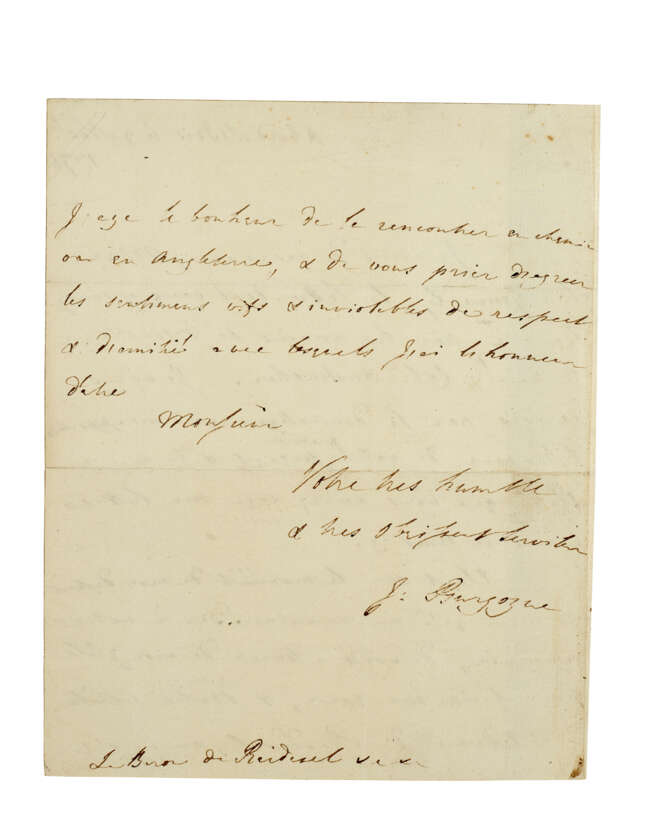 J'aye le bonheur de le rencontrer en chemin
ou en Angleterre, & de vous prier d'agreer
les sentimens vifs & inviolables de respect
& d'amitié avec lesquels j'ai le honneur
d'etre
Monsieur
Votre tres humble
& tres obeissant Serviteur
J: Burgoyne
Le Baron de Reidesel &c &c